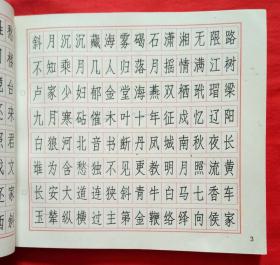 斜月沉沉藏海雾碣石潇湘无限路
不知乘月几人归落月摇情满江树
卢家少妇郁金堂海燕双栖玳瑁梁
九月寒砧催木叶十年征戍忆辽阳
白狼河北音书断丹凤城南秋夜长
谁为含愁独不见更教明月照流黄
长安大道连狭斜青牛白马七香车
玉辇纵横过主第金鞭络绎向侯家
3